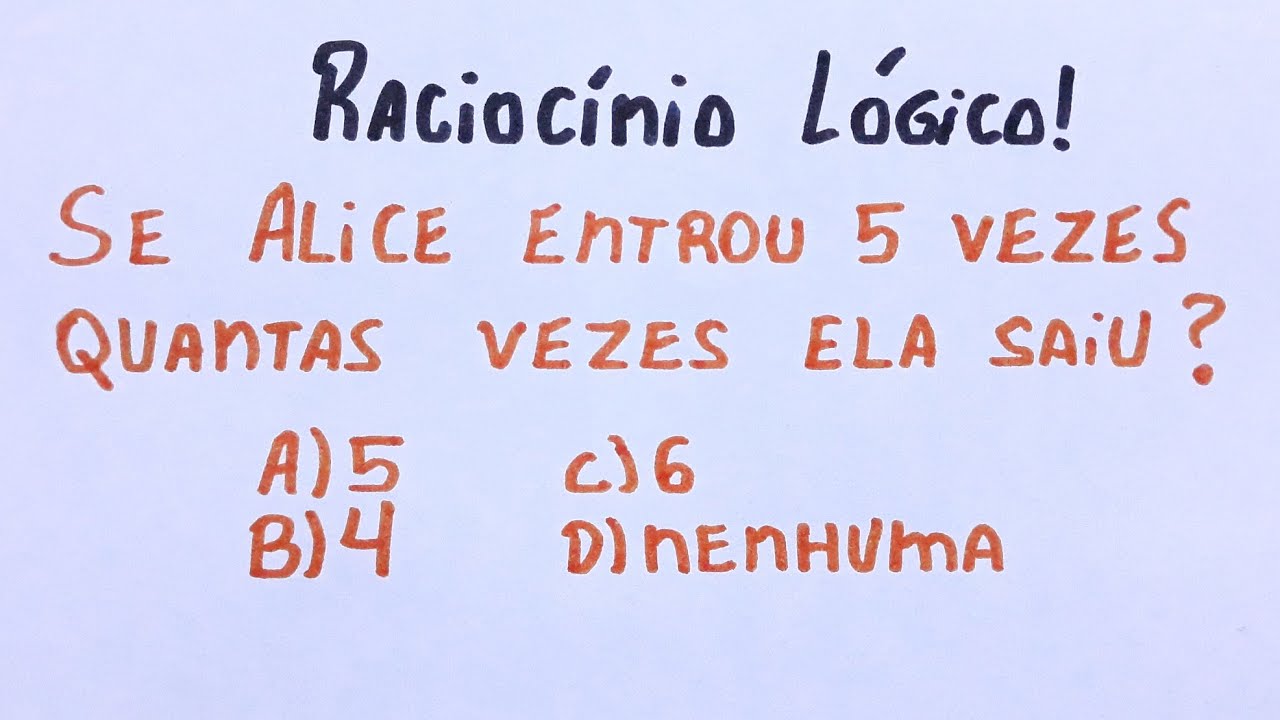 Raciocínio Lógico!
SE ALiCE ENTROU 5 VEZES
QUANTAS VEZES ELA SAiU?
A) 5 C) 6
B) 4 D) NENHUMA